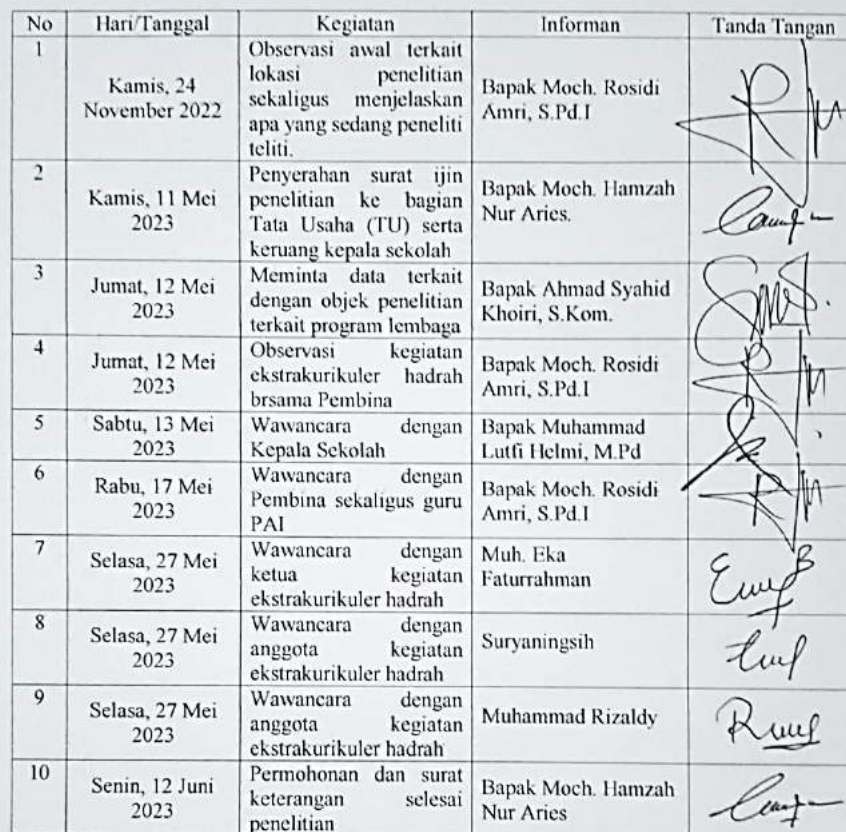 No Hari/Tanggal Kegiatan Informan Tanda Tangan
1
Kamis, 24
November 2022
Observasi awal terkait
lokasi penelitian
sekaligus menjelaskan
apa yang sedang peneliti
teliti.
Bapak Moch. Rosidi
Amri, S.Pd.I
2
Kamis, 11 Mei
2023
Penyerahan surat ijin
penelitian ke bagian
Tata Usaha (TU) serta
keruang kepala sekolah
Bapak Moch. Hamzah
Nur Aries.
3
Jumat, 12 Mei
2023
Meminta data terkait
dengan objek penelitian
terkait program lembaga
Bapak Ahmad Syahid
Khoiri, S.Kom.
4
Jumat, 12 Mei
2023
Observasi kegiatan
ekstrakurikuler hadrah
brsama Pembina
Bapak Moch. Rosidi
Amri, S.Pd.I
5
Sabtu, 13 Mei
2023
Wawancara dengan
Kepala Sekolah
Bapak Muhammad
Lutfi Helmi, M.Pd
6
Rabu, 17 Mei
2023
Wawancara dengan
Pembina sekaligus guru
PAI
Bapak Moch. Rosidi
Amri, S.Pd.I
7
Selasa, 27 Mei
2023
Wawancara dengan
ketua kegiatan
ekstrakurikuler hadrah
Muh. Eka
Faturrahman
8
Selasa, 27 Mei
2023
Wawancara dengan
anggota kegiatan
ekstrakurikuler hadrah
Suryaningsih
9
Selasa, 27 Mei
2023
Wawancara dengan
anggota kegiatan
ekstrakurikuler hadrah
Muhammad Rizaldy
10
Senin, 12 Juni
2023
Permohonan dan surat
keterangan selesai
penelitian
Bapak Moch. Hamzah
Nur Aries